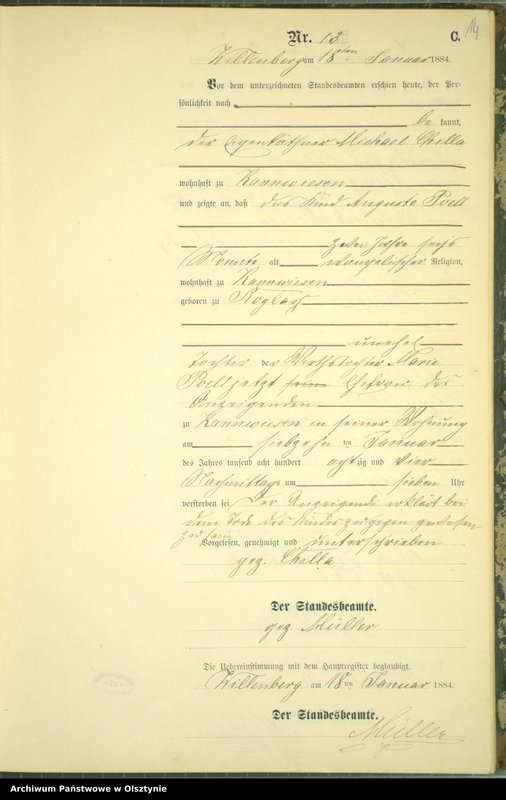 14
Nr. 13 C.
Willenberg am 18ten Januar 1884.
Vor dem unterzeichneten Standesbeamten erschien heute, der Per-
sönlichkeit nach
be kannt,
der Eigenkäthner Michael Chilla
wohnhaft zu Kannwiesen
und zeigte an, daß das Kind Auguste Poell
zwei Jahre sechs
Monate alt evangelischer Religion,
wohnhaft zu Kannwiesen
geboren zu Roglach
unehel
Tochter der Wirthstochter Marie
Poell jetzt seine Ehefrau des
Anzeigenden
zu Kannwiesen in seiner Wohnung
am siebzehn ten Januar
des Jahres tausend acht hundert acht zig und vier
Nachmittags um sieben Uhr
verstorben sei Der Anzeigende erklärt bei
dem Tode des Kindes zugegen gewesen
zu sein.
Vorgelesen, genehmigt und unterschrieben
gez. Chilla
Der Standesbeamte.
gez. Müller
Die Uebereinstimmung mit dem Hauptregister beglaubigt.
Willenberg am 18ten Januar 1884.
Der Standesbeamte.
Müller
Archiwum Państwowe w Olsztynie